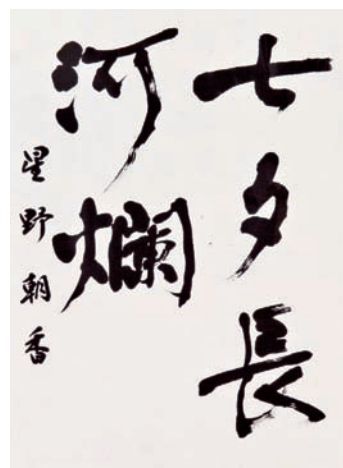 七夕長
河爛
星野朝香